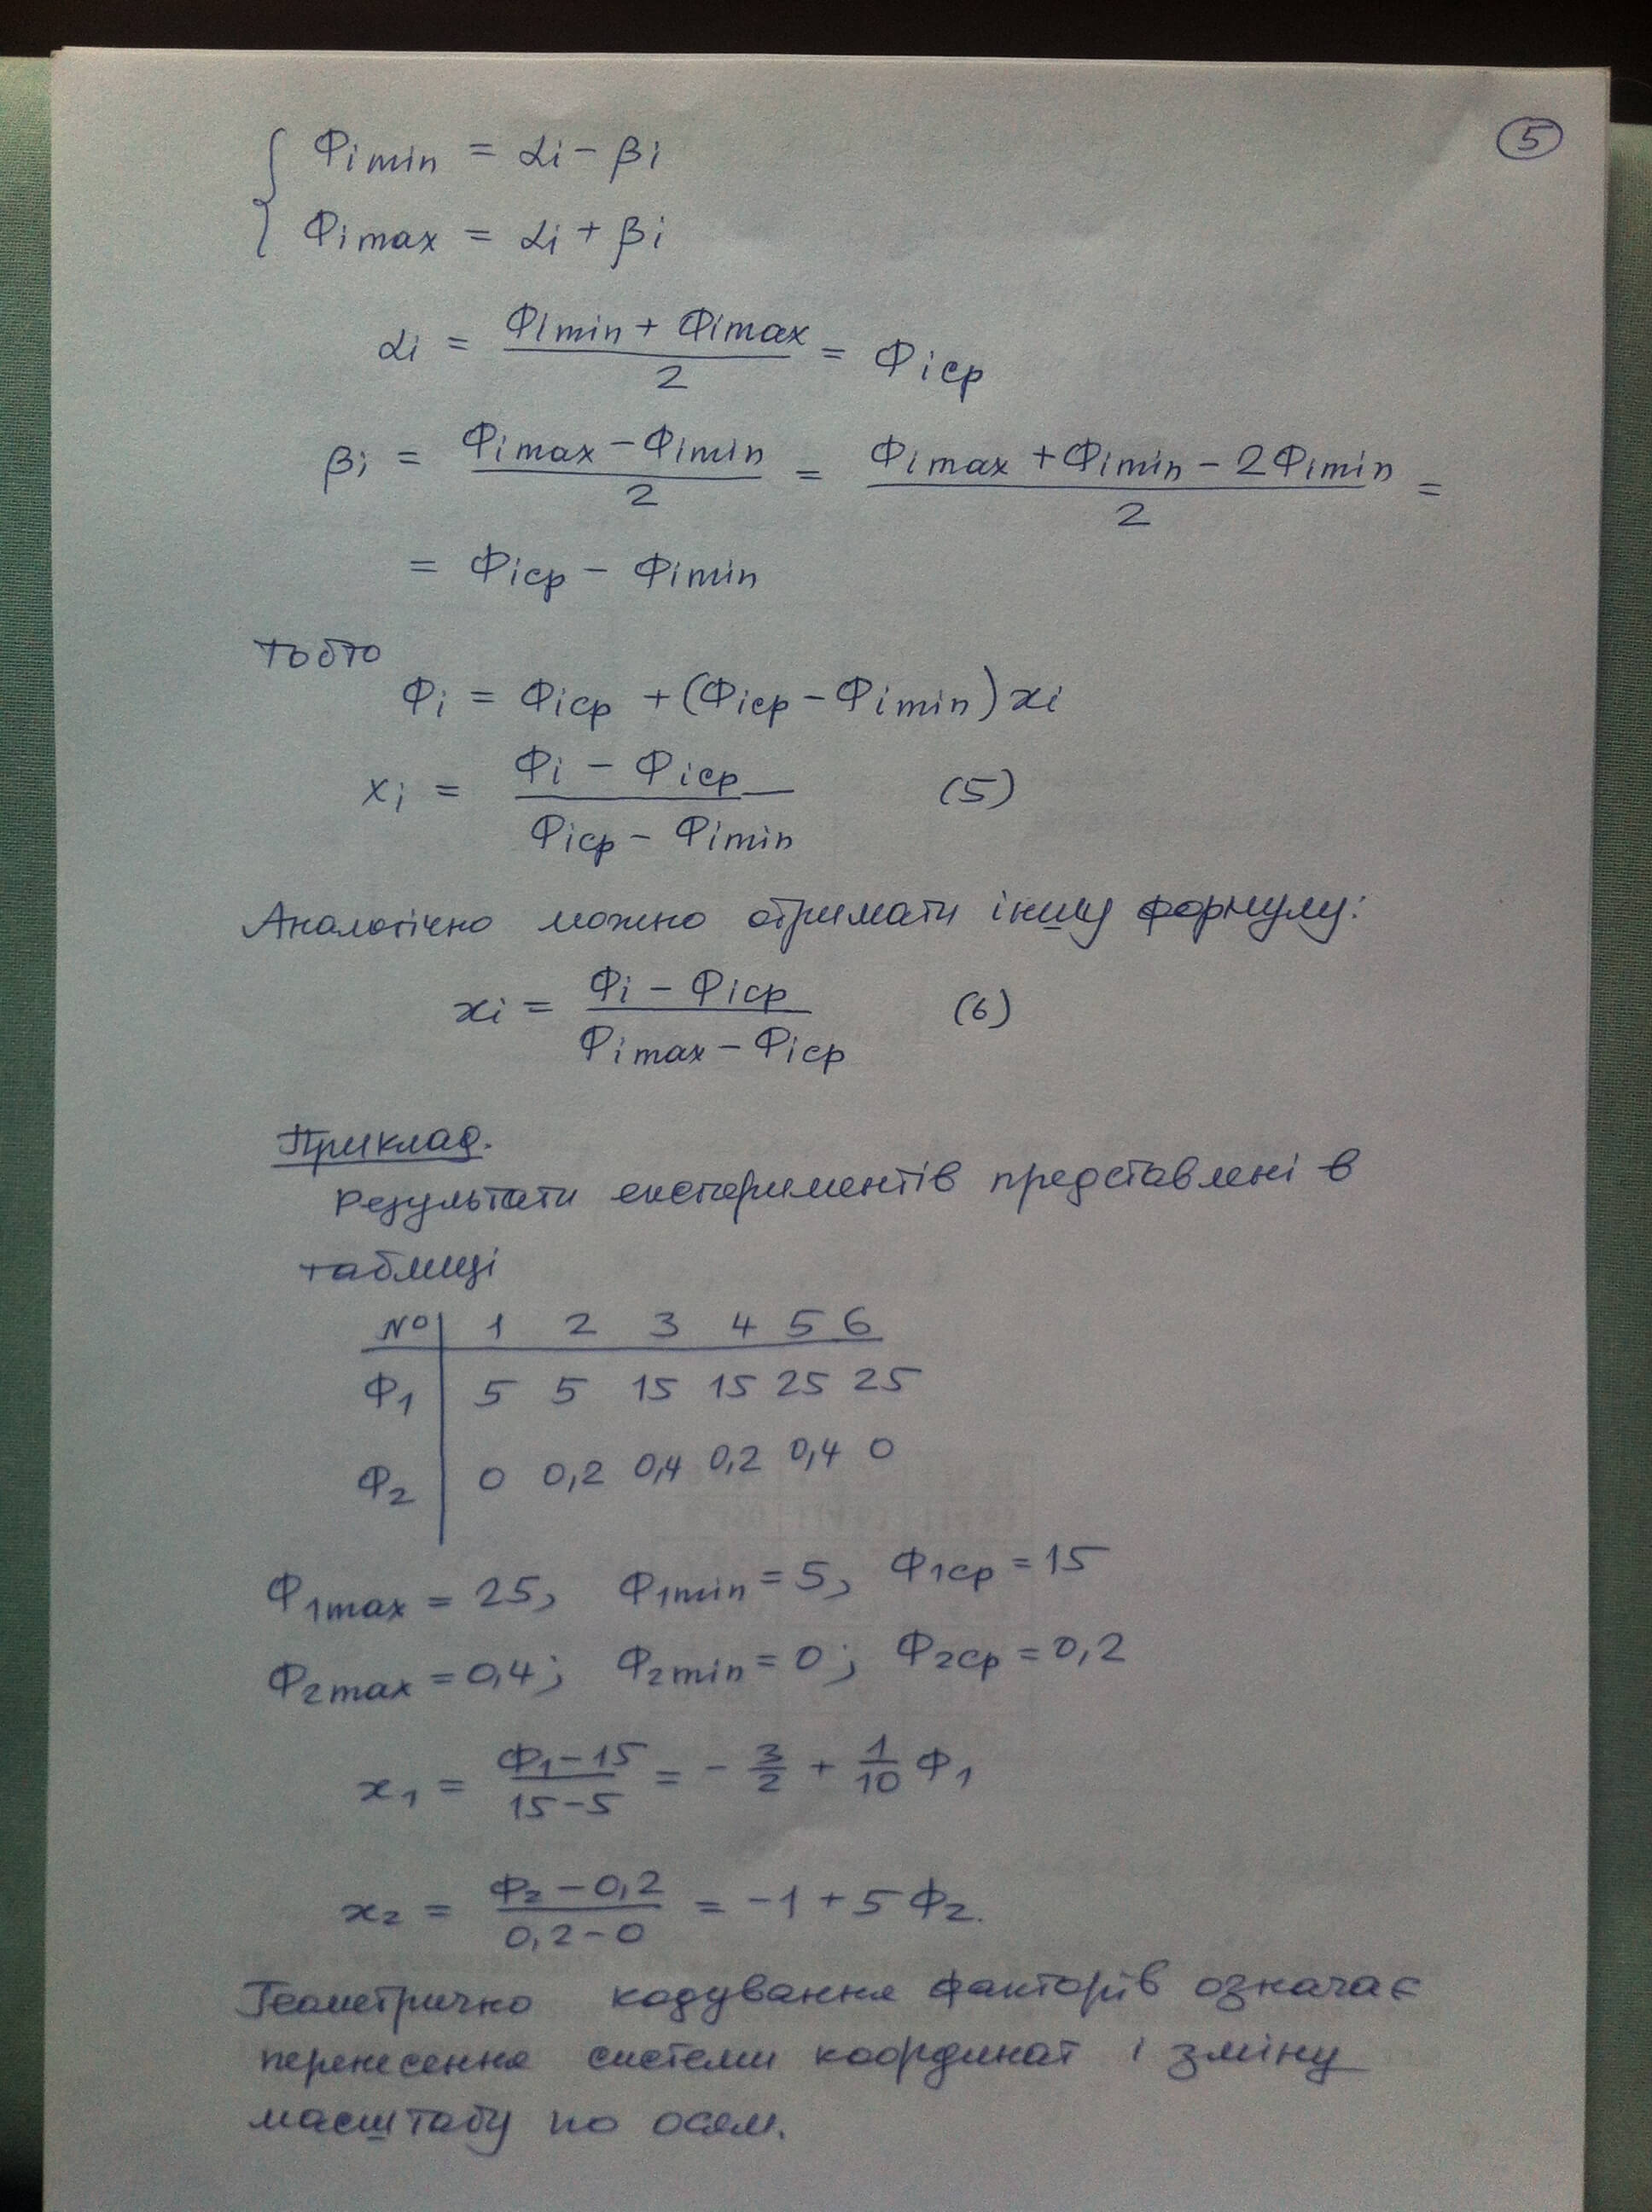 5
Φi min = αi − βi
Φi max = αi + βi
αi = (Φi min + Φi max) / 2 = Φi ср
βi = (Φi max − Φi min) / 2 = (Φi max + Φi min − 2Φi min) / 2 =
= Φi ср − Φi min
Тобто
Φi = Φi ср + (Φi ср − Φi min) xi
xi = (Φi − Φi ср) / (Φi ср − Φi min) (5)
Аналогічно можно отримати іншу формулу:
xi = (Φi − Φi ср) / (Φi max − Φi ср) (6)
Приклад.
Результати експериментів представлені в
таблиці
№ 1 2 3 4 5 6
Φ1 5 5 15 15 25 25
Φ2 0 0,2 0,4 0,2 0,4 0
Φ1 max = 25, Φ1 min = 5, Φ1 ср = 15
Φ2 max = 0,4; Φ2 min = 0; Φ2 ср = 0,2
x1 = (Φ1 − 15) / (15 − 5) = − 3/2 + 1/10 Φ1
x2 = (Φ2 − 0,2) / (0,2 − 0) = −1 + 5 Φ2.
Геометрично кодування факторів означає
перенесення системи координат і зміну
масштабу по осям.